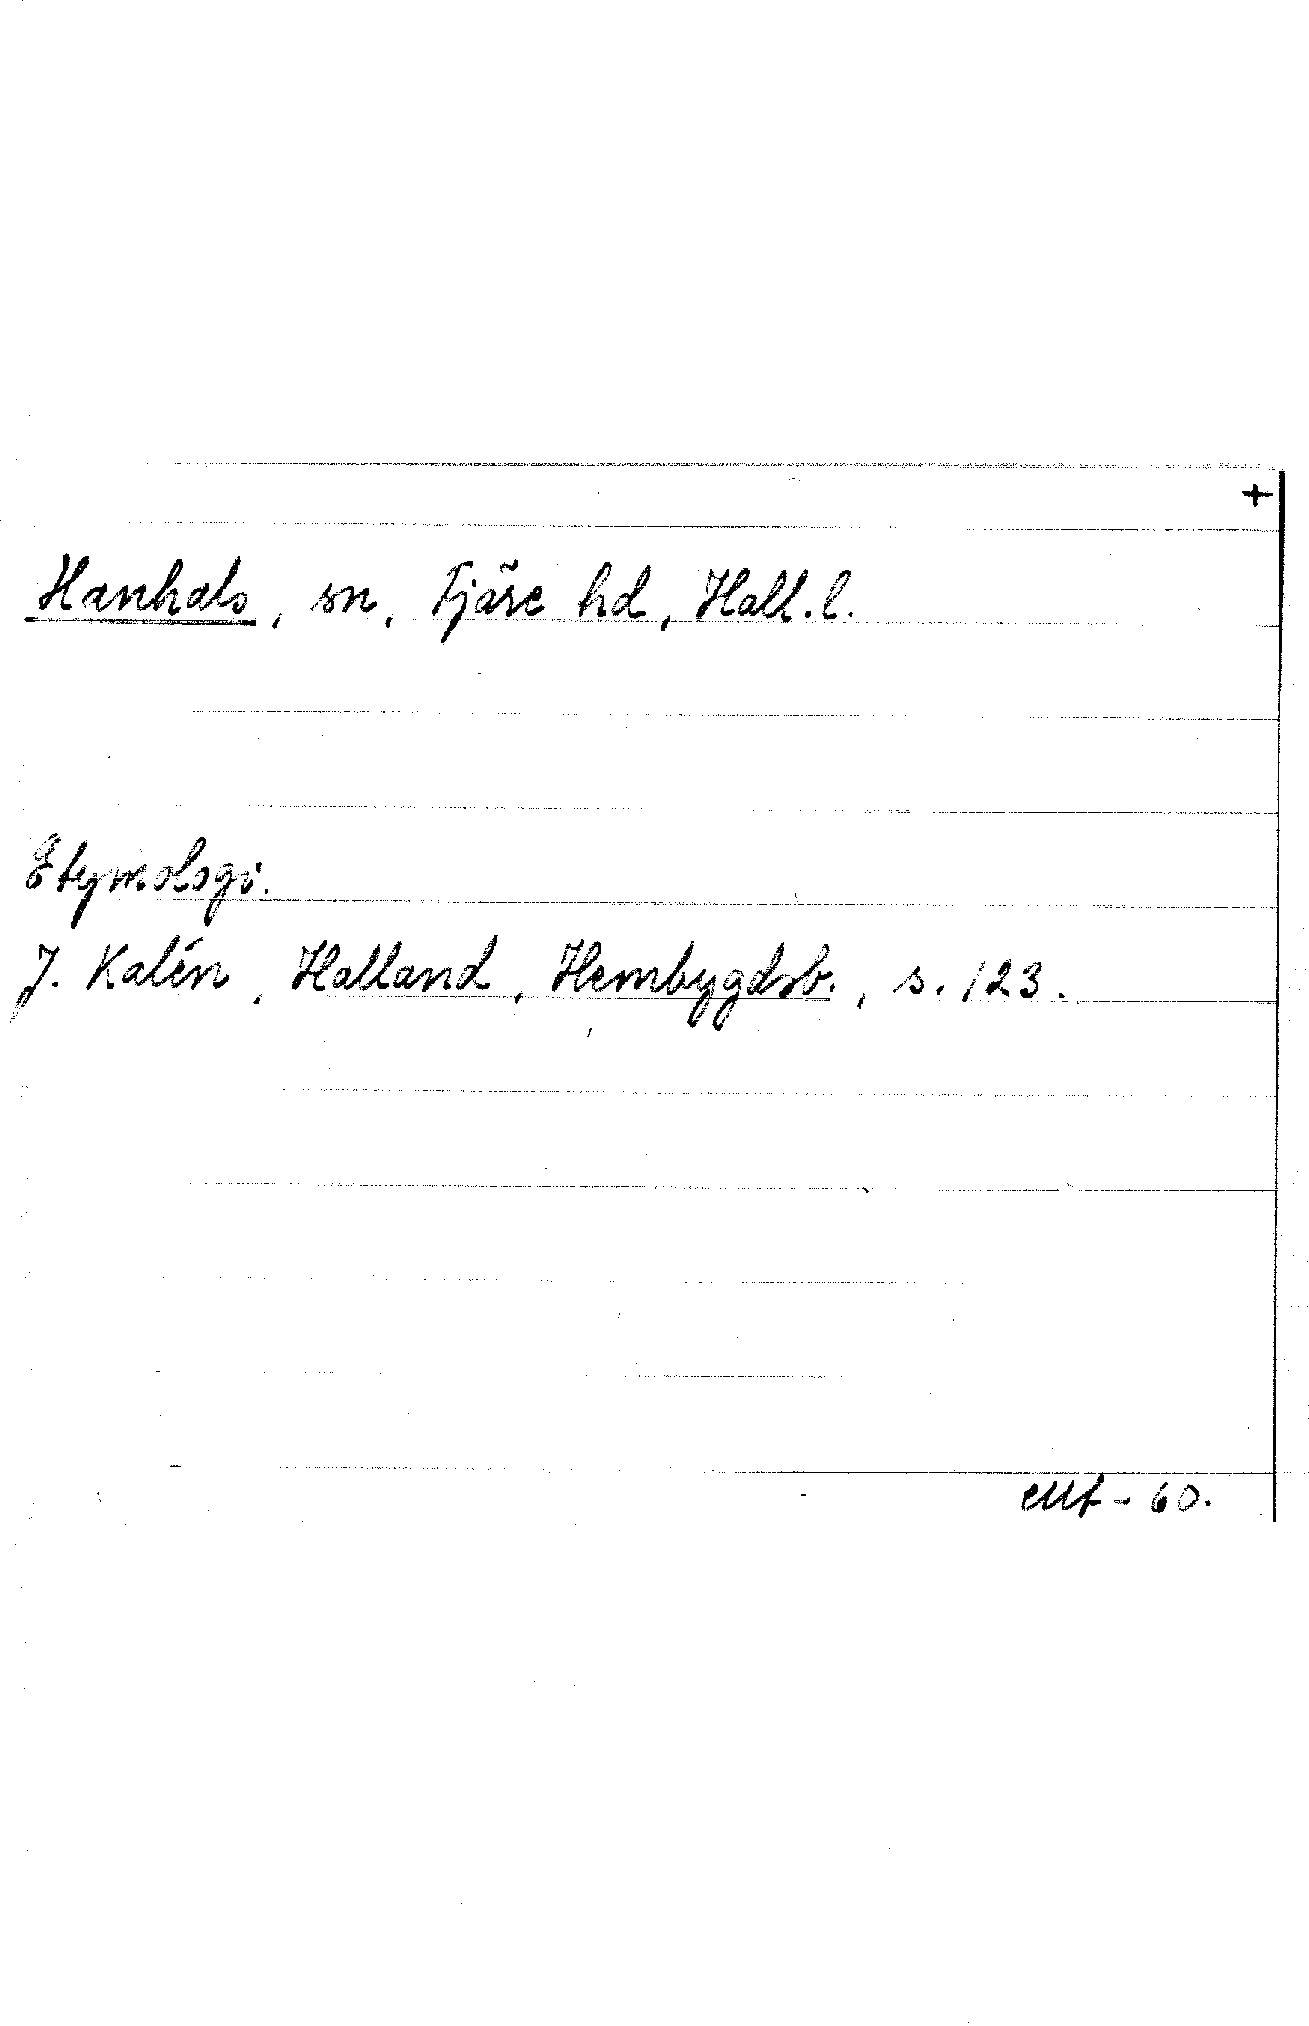 +
Hanhals, sn, Fjäre hd, Hall.l.
Etymologi.
J. Kalén, Halland, Hembygdsb., s. 123.
-60.